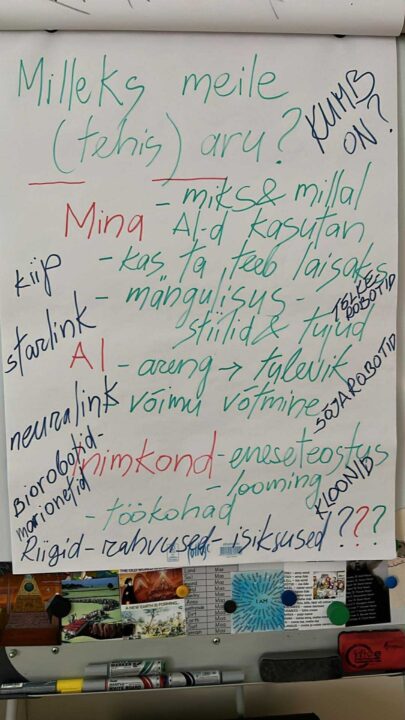 Milleks meile
(tehis) aru?
KUMB
ON?
- miks & millal
Mina AI-d kasutan
- kas ta teeb laisaks
kiip
- mängulisus -
stiilid & tujud
starlink
AI - areng → tulevik
võimu võtmine
neuralink
SÕJAROBOTID
Inimkond - eneseteostus
- looming
Biorobotid-
marionetid
KLOONID
- töökohad
Riigid - rahvused - isiksused ???
A NEW EARTH IS FORMING...
I AM